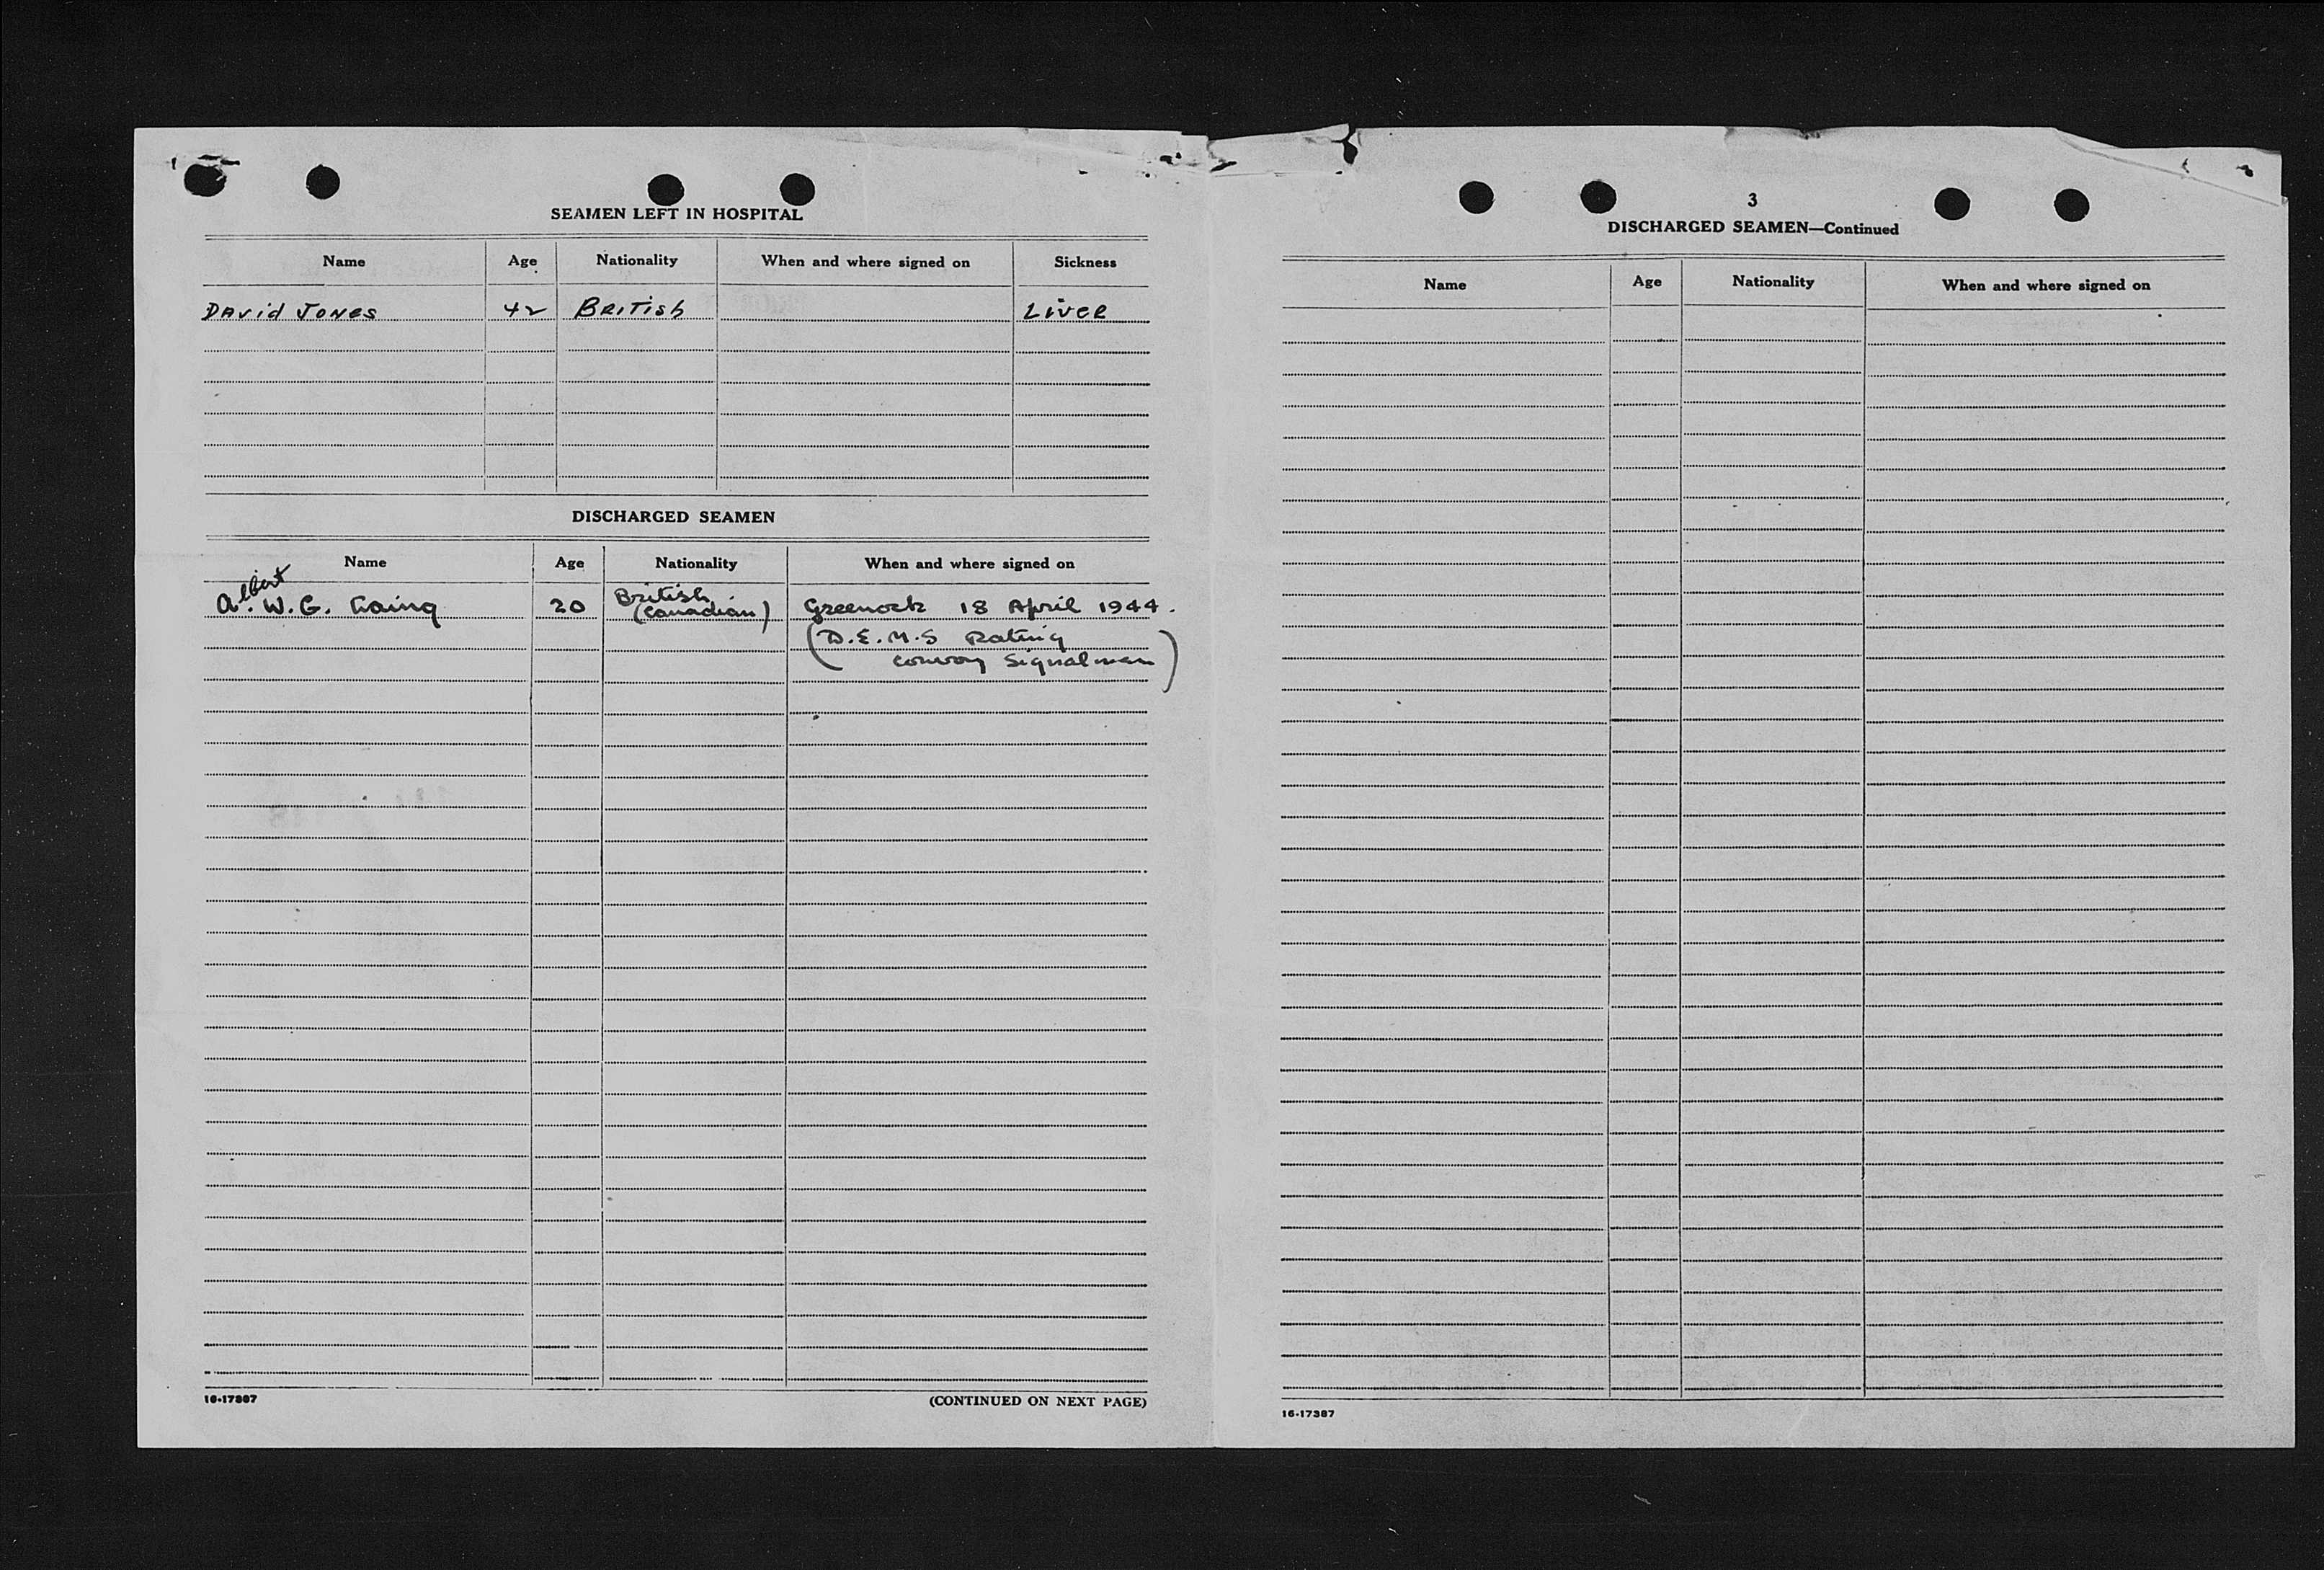 SEAMEN LEFT IN HOSPITAL
Name Age Nationality When and where signed on Sickness
David Jones 42 British Liver
DISCHARGED SEAMEN
Name Age Nationality When and where signed on
Albert
A. W. G. 20 British (Canadian) Greenock 18 April 1944.
(D.E.M.S Rating
convoy Signalman)
16-17387 (CONTINUED ON NEXT PAGE)
3
DISCHARGED SEAMEN—Continued
Name Age Nationality When and where signed on
16-17387